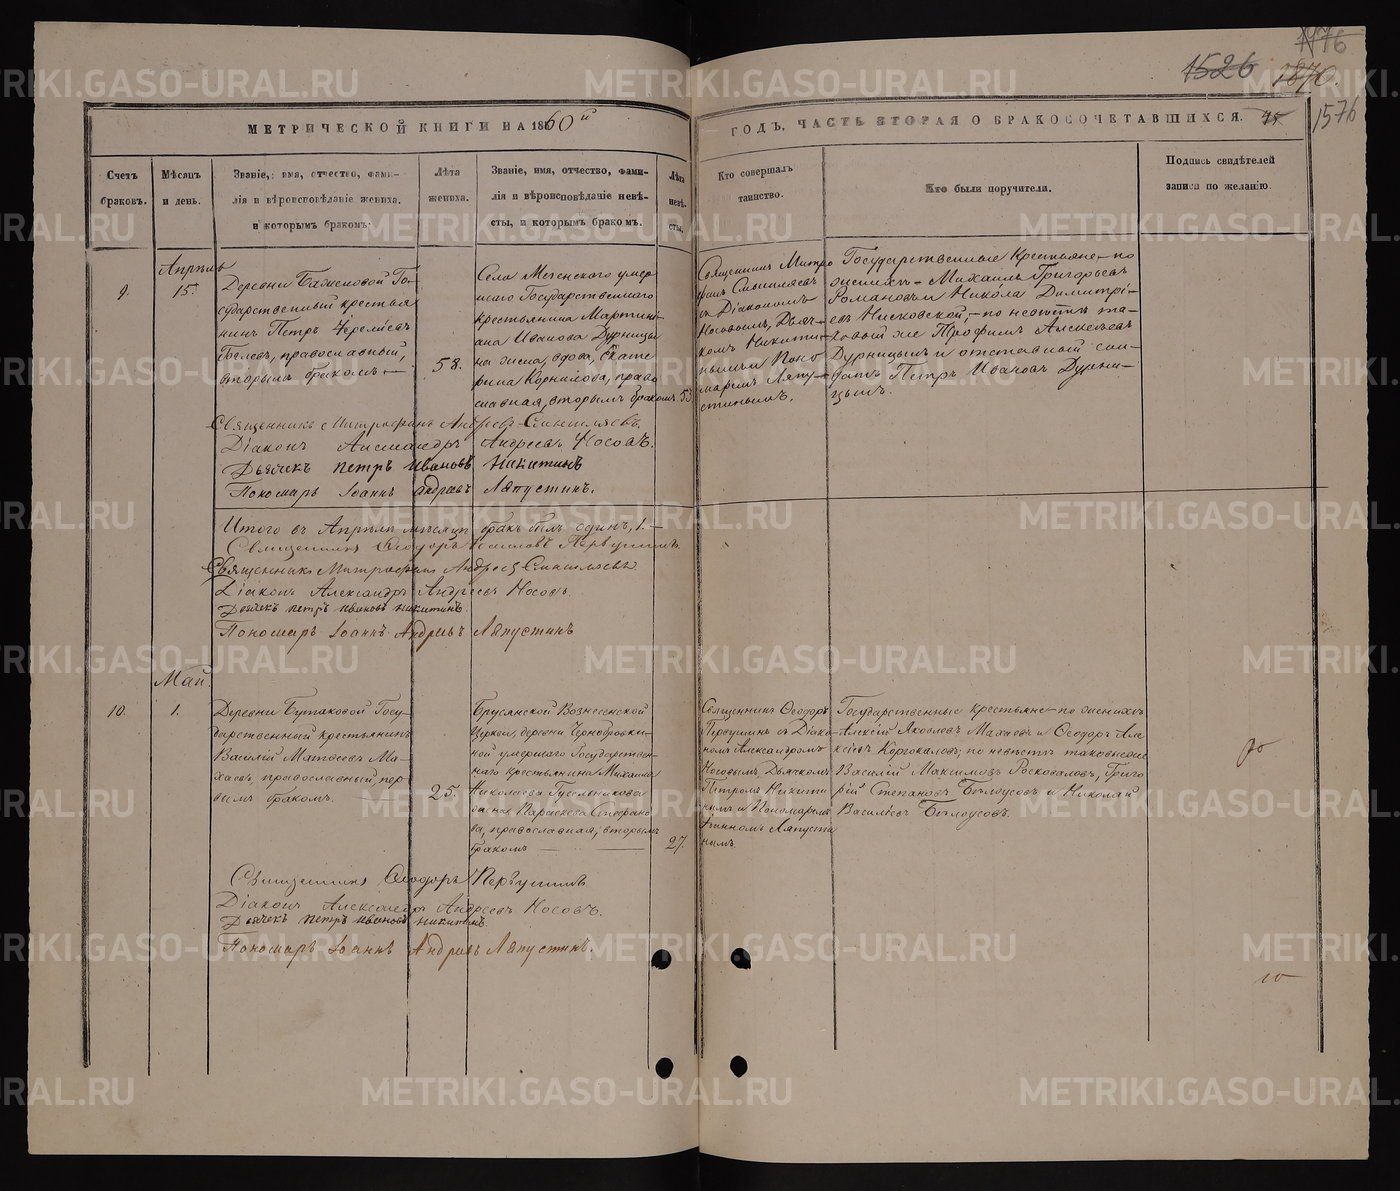 1976
1526
1870.
1576
МЕТРИЧЕСКОЙ КНИГИ НА 1860й
ГОДЪ, ЧАСТЬ ВТОРАЯ О БРАКОСОЧЕТАВШИХСЯ.
Счетъ браковъ.
Мѣсяцъ и день.
Званіе, имя, отчество, фами-
лія и вѣроисповѣданіе жениха,
и которымъ бракомъ.
Лѣта жениха.
Званіе, имя, отчество, фами-
лія и вѣроисповѣданіе невѣ-
сты, и которымъ бракомъ.
Лѣта невѣ-
сты.
Кто совершалъ
таинство.
Кто были поручители.
Подпись свидѣтелей
записи по желанію.
9.
Апрѣль
15.
Деревни Баженовой Го-
сударственный крестья
нинъ Петръ
православный,
вторымъ бракомъ —
58.
Села Мезенскаго умер
шаго Государственнаго
крестьянина Мартині-
ана Иванова Дурницы
на жена, вдова, Екате
рина Корнилова, право
славная, вторымъ бракомъ
53.
Священникъ Митро
фанъ Смышляевъ
съ Діакономъ
Носовымъ, Дьяч-
комъ Никити-
нымъ и Поно
маремъ Ляпу-
стинымъ.
Государственные Крестьяне — по
женихѣ — Михаилъ Григорьевъ
Романовъ и Никола Димитрі-
евъ — по невѣстѣ та-
ковый же Трофимъ Алексѣевъ
Дурницынъ и отставный сол-
датъ Петръ Ивановъ Дурни-
цынъ.
Священникъ Митрофанъ Андреевъ Смышляевъ.
Діаконъ Александръ Андреевъ Носовъ.
Дьячекъ Петръ Ивановъ Никитинъ
Пономарь Іоаннъ Андреевъ Ляпустинъ.
Итого въ Апрѣлѣ мѣсяцѣ бракъ былъ одинъ, 1. —
Священникъ Ѳеодоръ Первушинъ.
Священникъ Митрофанъ Андреевъ Смышляевъ
Діаконъ Александръ Андреевъ Носовъ.
Дьячекъ Петръ Ивановъ Никитинъ.
Пономарь Іоаннъ Андреевъ Ляпустинъ
Май.
10.
1.
Деревни Бутаковой Госу-
дарственный крестьянинъ
Василій Матвеевъ Ма-
хаевъ, православный, пер-
вымъ бракомъ.
25.
Брусянской Вознесенской
Церкви, деревни Чернобровки-
ной умершаго Государствен-
наго крестьянина Михаила
Николаева Гусельникова
жена Параскева Стефано-
ва, православная, вторымъ
бракомъ —
27.
Священникъ Ѳеодоръ
Первушинъ съ Діако-
номъ Александромъ
Носовымъ, Дьячкомъ
Петромъ Никити-
нымъ и Пономаремъ
Іоанномъ Ляпусти
нымъ.
Государственные крестьяне — по женихѣ
Алексій Яковлевъ Махаевъ и Ѳеодоръ Але
ксіевъ Коркохалевъ; по невѣстѣ таковые же
Василій Максимовъ Росковаловъ, Григо-
рій Степановъ Бѣлоусовъ и Николай
Василіевъ Бѣлоусовъ.
Священникъ Ѳеодоръ Первушинъ
Діаконъ Александръ Андреевъ Носовъ.
Дьячекъ Петръ Ивановъ Никитинъ.
Пономарь Іоаннъ Андреевъ Ляпустинъ.
METRIKI.GASO-URAL.RU